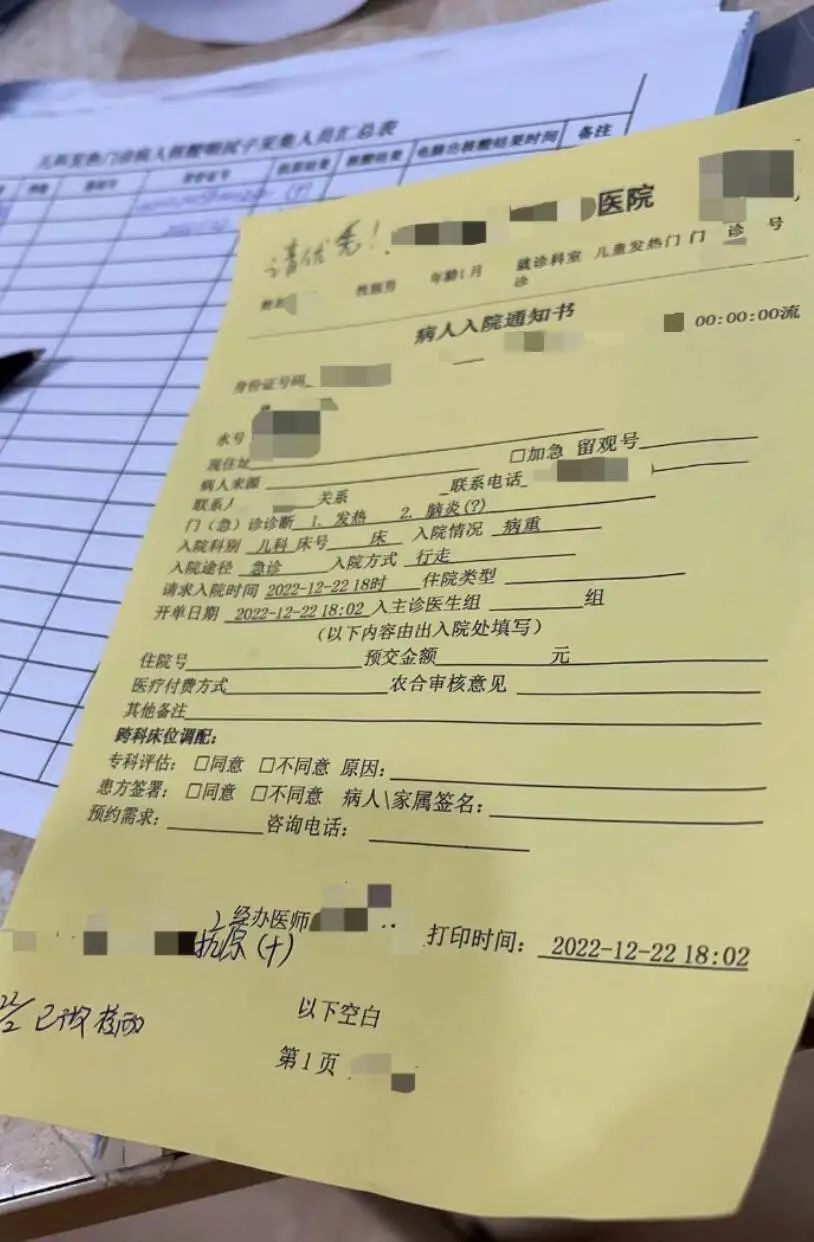 儿科发热门诊病人核酸咽拭子采集人员汇总表
身份证号 抗原结果 核酸结果 电脑出核酸结果时间 备注
(+)
请优先!
医院
姓名 性别男 年龄1月 就诊科室 儿童发热门诊 门诊号
病人入院通知书
00:00:00流
身份证号码
水号
现住址
□加急 留观号
病人来源
联系电话
联系人 关系
门(急)诊诊断 1. 发热 2. 脑炎(?)
入院科别 儿科 床号 床 入院情况 病重
入院途径 急诊 入院方式 行走
请求入院时间 2022-12-22 18时 住院类型
开单日期 2022-12-22 18:02 入主诊医生组 组
(以下内容由出入院处填写)
住院号 预交金额 元
医疗付费方式 农合审核意见
其他备注
跨科床位调配:
专科评估: □同意 □不同意 原因:
患方签署: □同意 □不同意 病人\家属签名:
预约需求: 咨询电话:
经办医师
打印时间: 2022-12-22 18:02
抗原(+)
已做核酸
以下空白
第1页